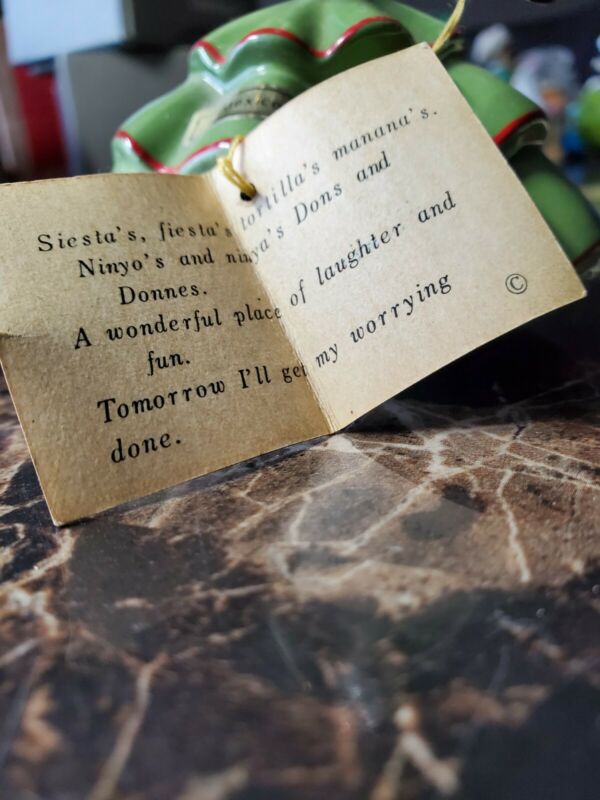 mexico
Siesta's, fiesta's tortilla's manana's.
Ninyo's and ninya's Dons and
Donnes.
A wonderful place of laughter and
fun.
Tomorrow I'll get my worrying
done.
©